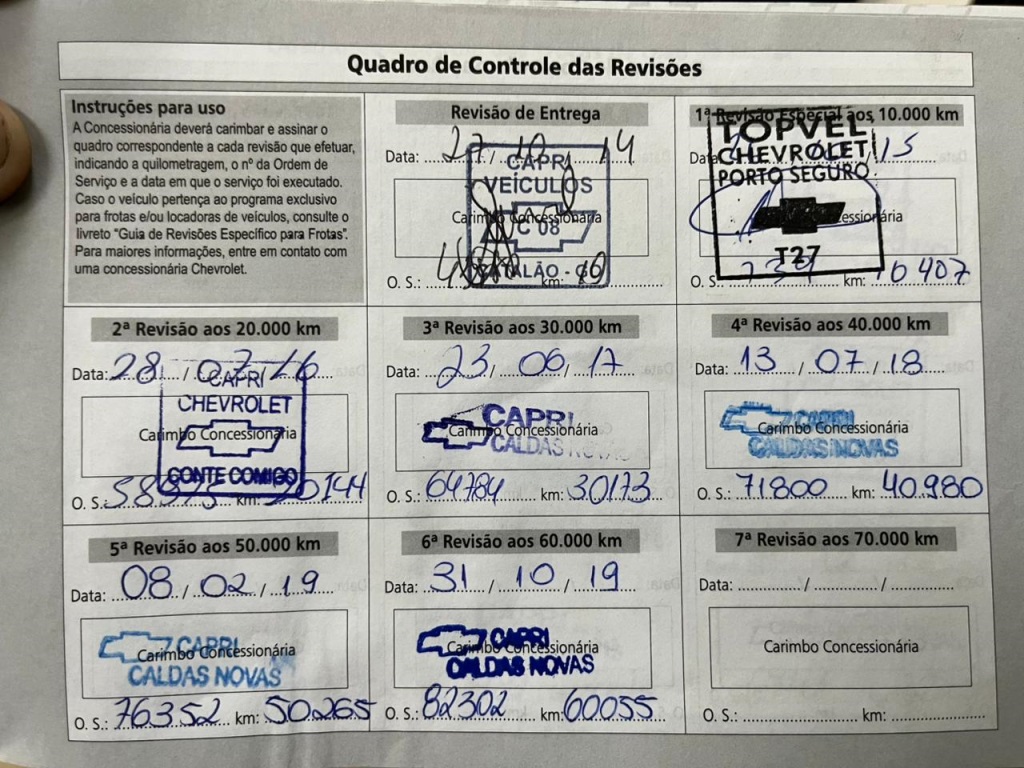 Quadro de Controle das Revisões
Instruções para uso
A Concessionária deverá carimbar e assinar o
quadro correspondente a cada revisão que efetuar,
indicando a quilometragem, o nº da Ordem de
Serviço e a data em que o serviço foi executado.
Caso o veículo pertença ao programa exclusivo
para frotas e/ou locadoras de veículos, consulte o
livreto “Guia de Revisões Específico para Frotas”.
Para maiores informações, entre em contato com
uma concessionária Chevrolet.
Revisão de Entrega
Data: 27 / 10 / 14
CAPRI
VEÍCULOS
Carimbo Concessionária
C 08
CATALÃO - GO
O. S.: km: 10
1ª Revisão Especial aos 10.000 km
TOPVEL
Data: / 15
CHEVROLET
PORTO SEGURO
Concessionária
T27
O. S. km: 10407
2ª Revisão aos 20.000 km
Data: 28 / 07 / 16
CAPRI
CHEVROLET
Carimbo Concessionária
CONTE COMIGO
O. S.: km: 20144
3ª Revisão aos 30.000 km
Data: 23 / 06 / 17
CAPRI
Carimbo Concessionária
CALDAS NOVAS
O. S.: 64784 km: 30173
4ª Revisão aos 40.000 km
Data: 13 / 07 / 18
CAPRI
Carimbo Concessionária
CALDAS NOVAS
O. S.: 71800 km: 40980
5ª Revisão aos 50.000 km
Data: 08 / 02 / 19
CAPRI
Carimbo Concessionária
CALDAS NOVAS
O. S.: 76352 km: 50265
6ª Revisão aos 60.000 km
Data: 31 / 10 / 19
CAPRI
Carimbo Concessionária
CALDAS NOVAS
O. S.: 82302 km: 60055
7ª Revisão aos 70.000 km
Data: / /
Carimbo Concessionária
O. S.: km: